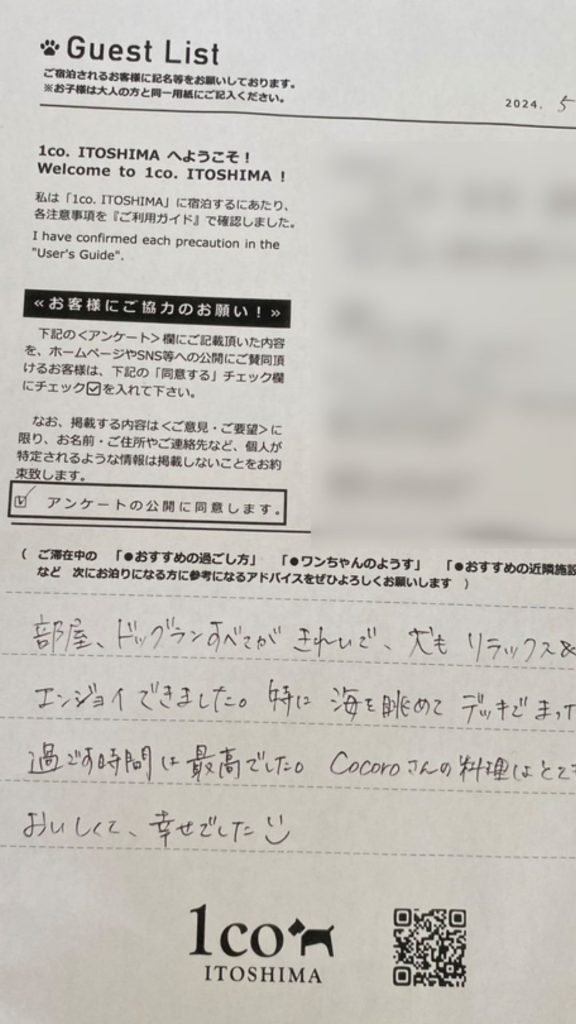 Guest List
ご宿泊されるお客様に記名等をお願いしております。
※お子様は大人の方と同一用紙にご記入ください。
2024. 5
1co. ITOSHIMA へようこそ！
Welcome to 1co. ITOSHIMA !
私は「1co. ITOSHIMA」に宿泊するにあたり、
各注意事項を『ご利用ガイド』で確認しました。
I have confirmed each precaution in the
"User's Guide".
≪お客様にご協力のお願い！≫
下記の<アンケート>欄にご記載頂いた内容
を、ホームページやSNS等への公開にご賛同頂
けるお客様は、下記の「同意する」チェック欄
にチェック☑を入れて下さい。
なお、掲載する内容は<ご意見・ご要望>に
限り、お名前・ご住所やご連絡先など、個人が
特定されるような情報は掲載しないことをお約
束致します。
☑ アンケートの公開に同意します。
( ご滞在中の 「●おすすめの過ごし方」 「●ワンちゃんのようす」 「●おすすめの近隣施設
など 次にお泊りになる方に参考になるアドバイスをぜひよろしくお願いします )
部屋、ドッグランすべてが きれいで、犬も リラックス&
エンジョイできました。特に 海を眺めて デッキでまった
過ごす時間は最高でした。Cocoroさんの料理はとても
おいしくて、幸せでした
1co
ITOSHIMA